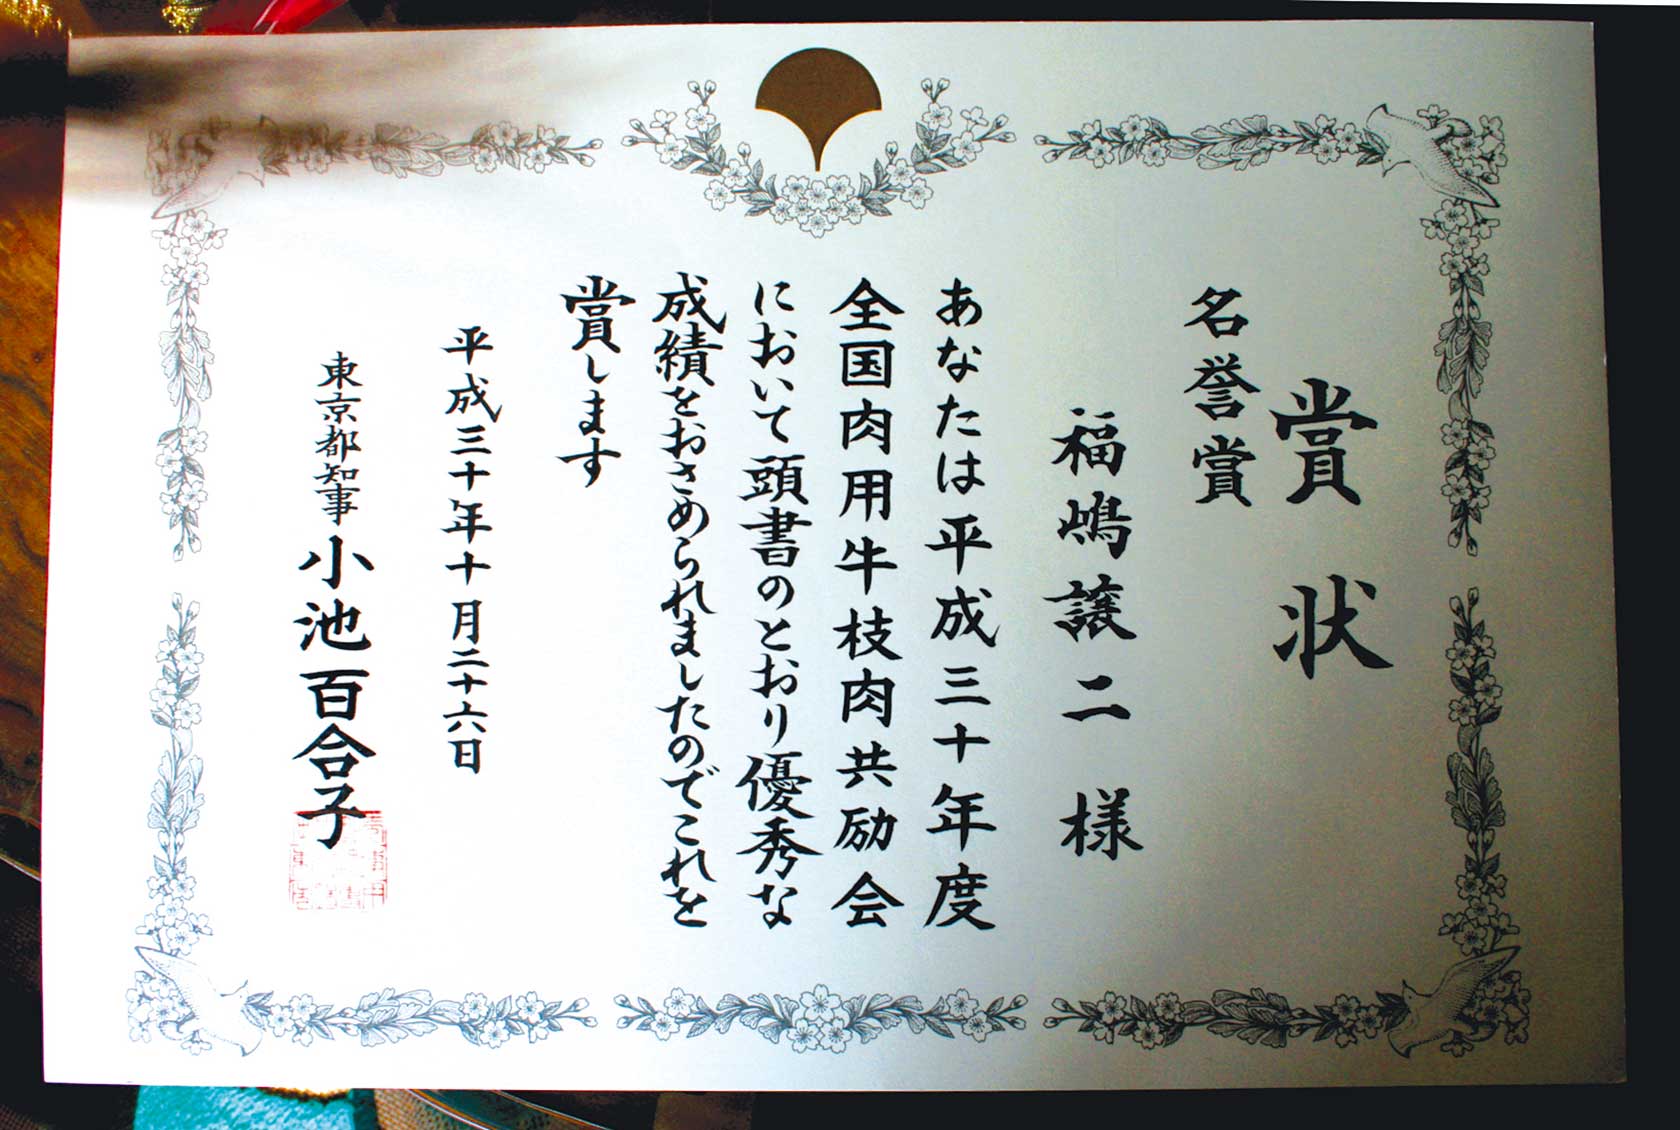 賞状
名誉賞
福嶋譲二様
あなたは平成三十年度
全国肉用牛枝肉共励会
において頭書のとおり優秀な
成績をおさめられましたのでこれを
賞します
平成三十年十月二十六日
東京都知事小池百合子